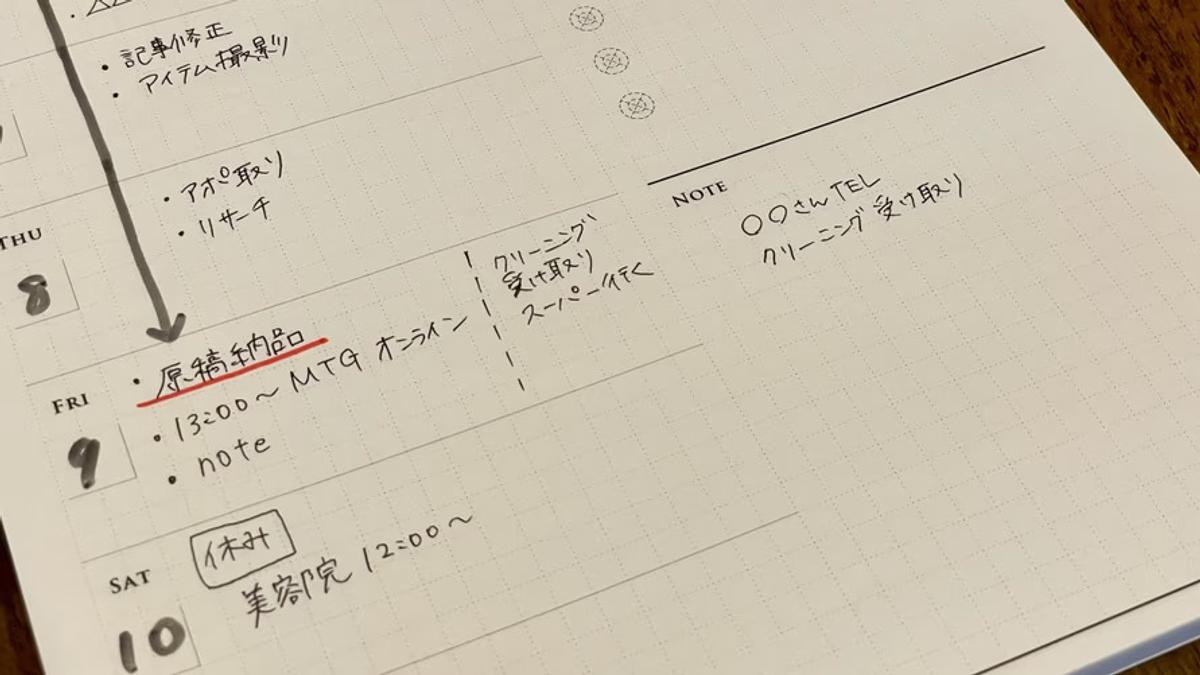 ・記事修正
・アイテム撮影
・アポ取り
・リサーチ
THU
8
・原稿納品
・13:00～ MTG オンライン
・note
クリーニング
受け取り
スーパー行く
FRI
9
休み
美容院 12:00～
SAT
10
NOTE
〇〇さんTEL
クリーニング 受け取り